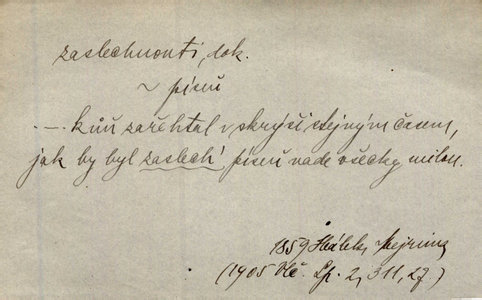 zaslechnouti, dok.
~ píseň
. — . kůň zařehtal v skrýši stejným časem,
jak by byl zaslech' píseň nade všecky milou.
1859 Hálek, Mejrima
(1905 Vlč. Sp. 2, 311, 27.)